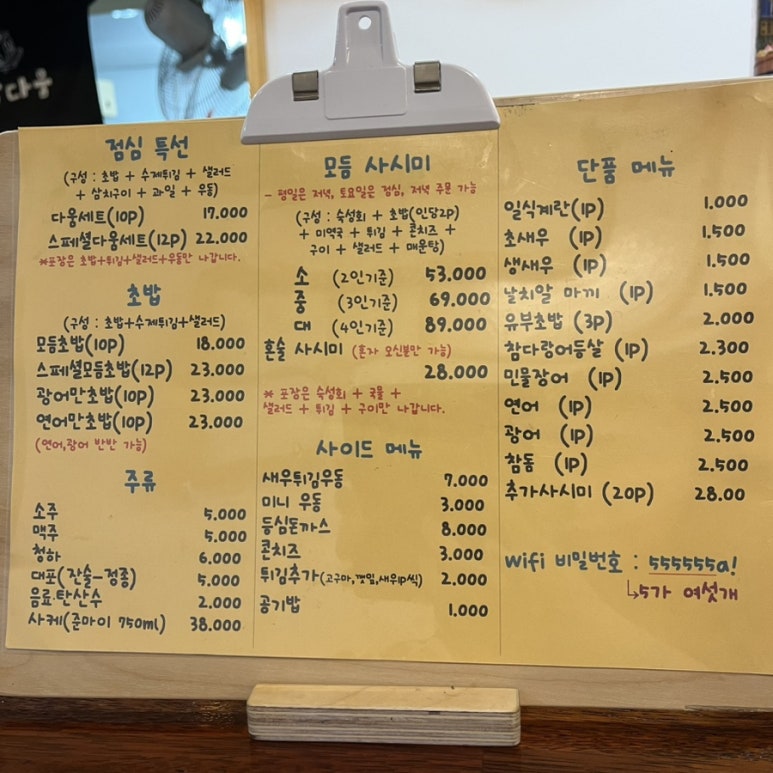 다움
점심 특선
(구성 : 초밥 + 수제튀김 + 샐러드
+ 삼치구이 + 과일 + 우동)
다움세트(10P) 17.000
스페셜다움세트(12P) 22.000
※포장은 초밥+튀김+샐러드+우동만 나갑니다.
초밥
(구성 : 초밥+수제튀김+샐러드)
모듬초밥(10P) 18.000
스페셜모듬초밥(12P) 23.000
광어만초밥(10P) 23.000
연어만초밥(10P) 23.000
(연어,광어 반반 가능)
주류
소주 5.000
맥주 5.000
청하 6.000
대포(잔술-정종) 5.000
음료.탄산수 2.000
사케(준마이 750ml) 38.000
모듬 사시미
- 평일은 저녁, 토요일은 점심, 저녁 주문 가능
(구성 : 숙성회 + 초밥(인당2P)
+ 미역국 + 튀김 + 콘치즈 +
구이 + 샐러드 + 매운탕)
소 (2인기준) 53.000
중 (3인기준) 69.000
대 (4인기준) 89.000
혼술 사시미 (혼자 오신분만 가능)
28.000
※ 포장은 숙성회 + 국물 +
샐러드 + 튀김 + 구이만 나갑니다.
사이드 메뉴
새우튀김우동 7.000
미니 우동 3.000
등심돈까스 8.000
콘치즈 3.000
튀김추가(고구마,깻잎,새우1P씩) 2.000
공기밥 1.000
단품 메뉴
일식계란(1P) 1.000
초새우 (1P) 1.500
생새우 (1P) 1.500
날치알 마끼 (1P) 1.500
유부초밥 (3P) 2.000
참다랑어등살 (1P) 2.300
민물장어 (1P) 2.500
연어 (1P) 2.500
광어 (1P) 2.500
참돔 (1P) 2.500
추가사시미 (20P) 28.00
wifi 비밀번호 : 555555a!
↳5가 여섯개